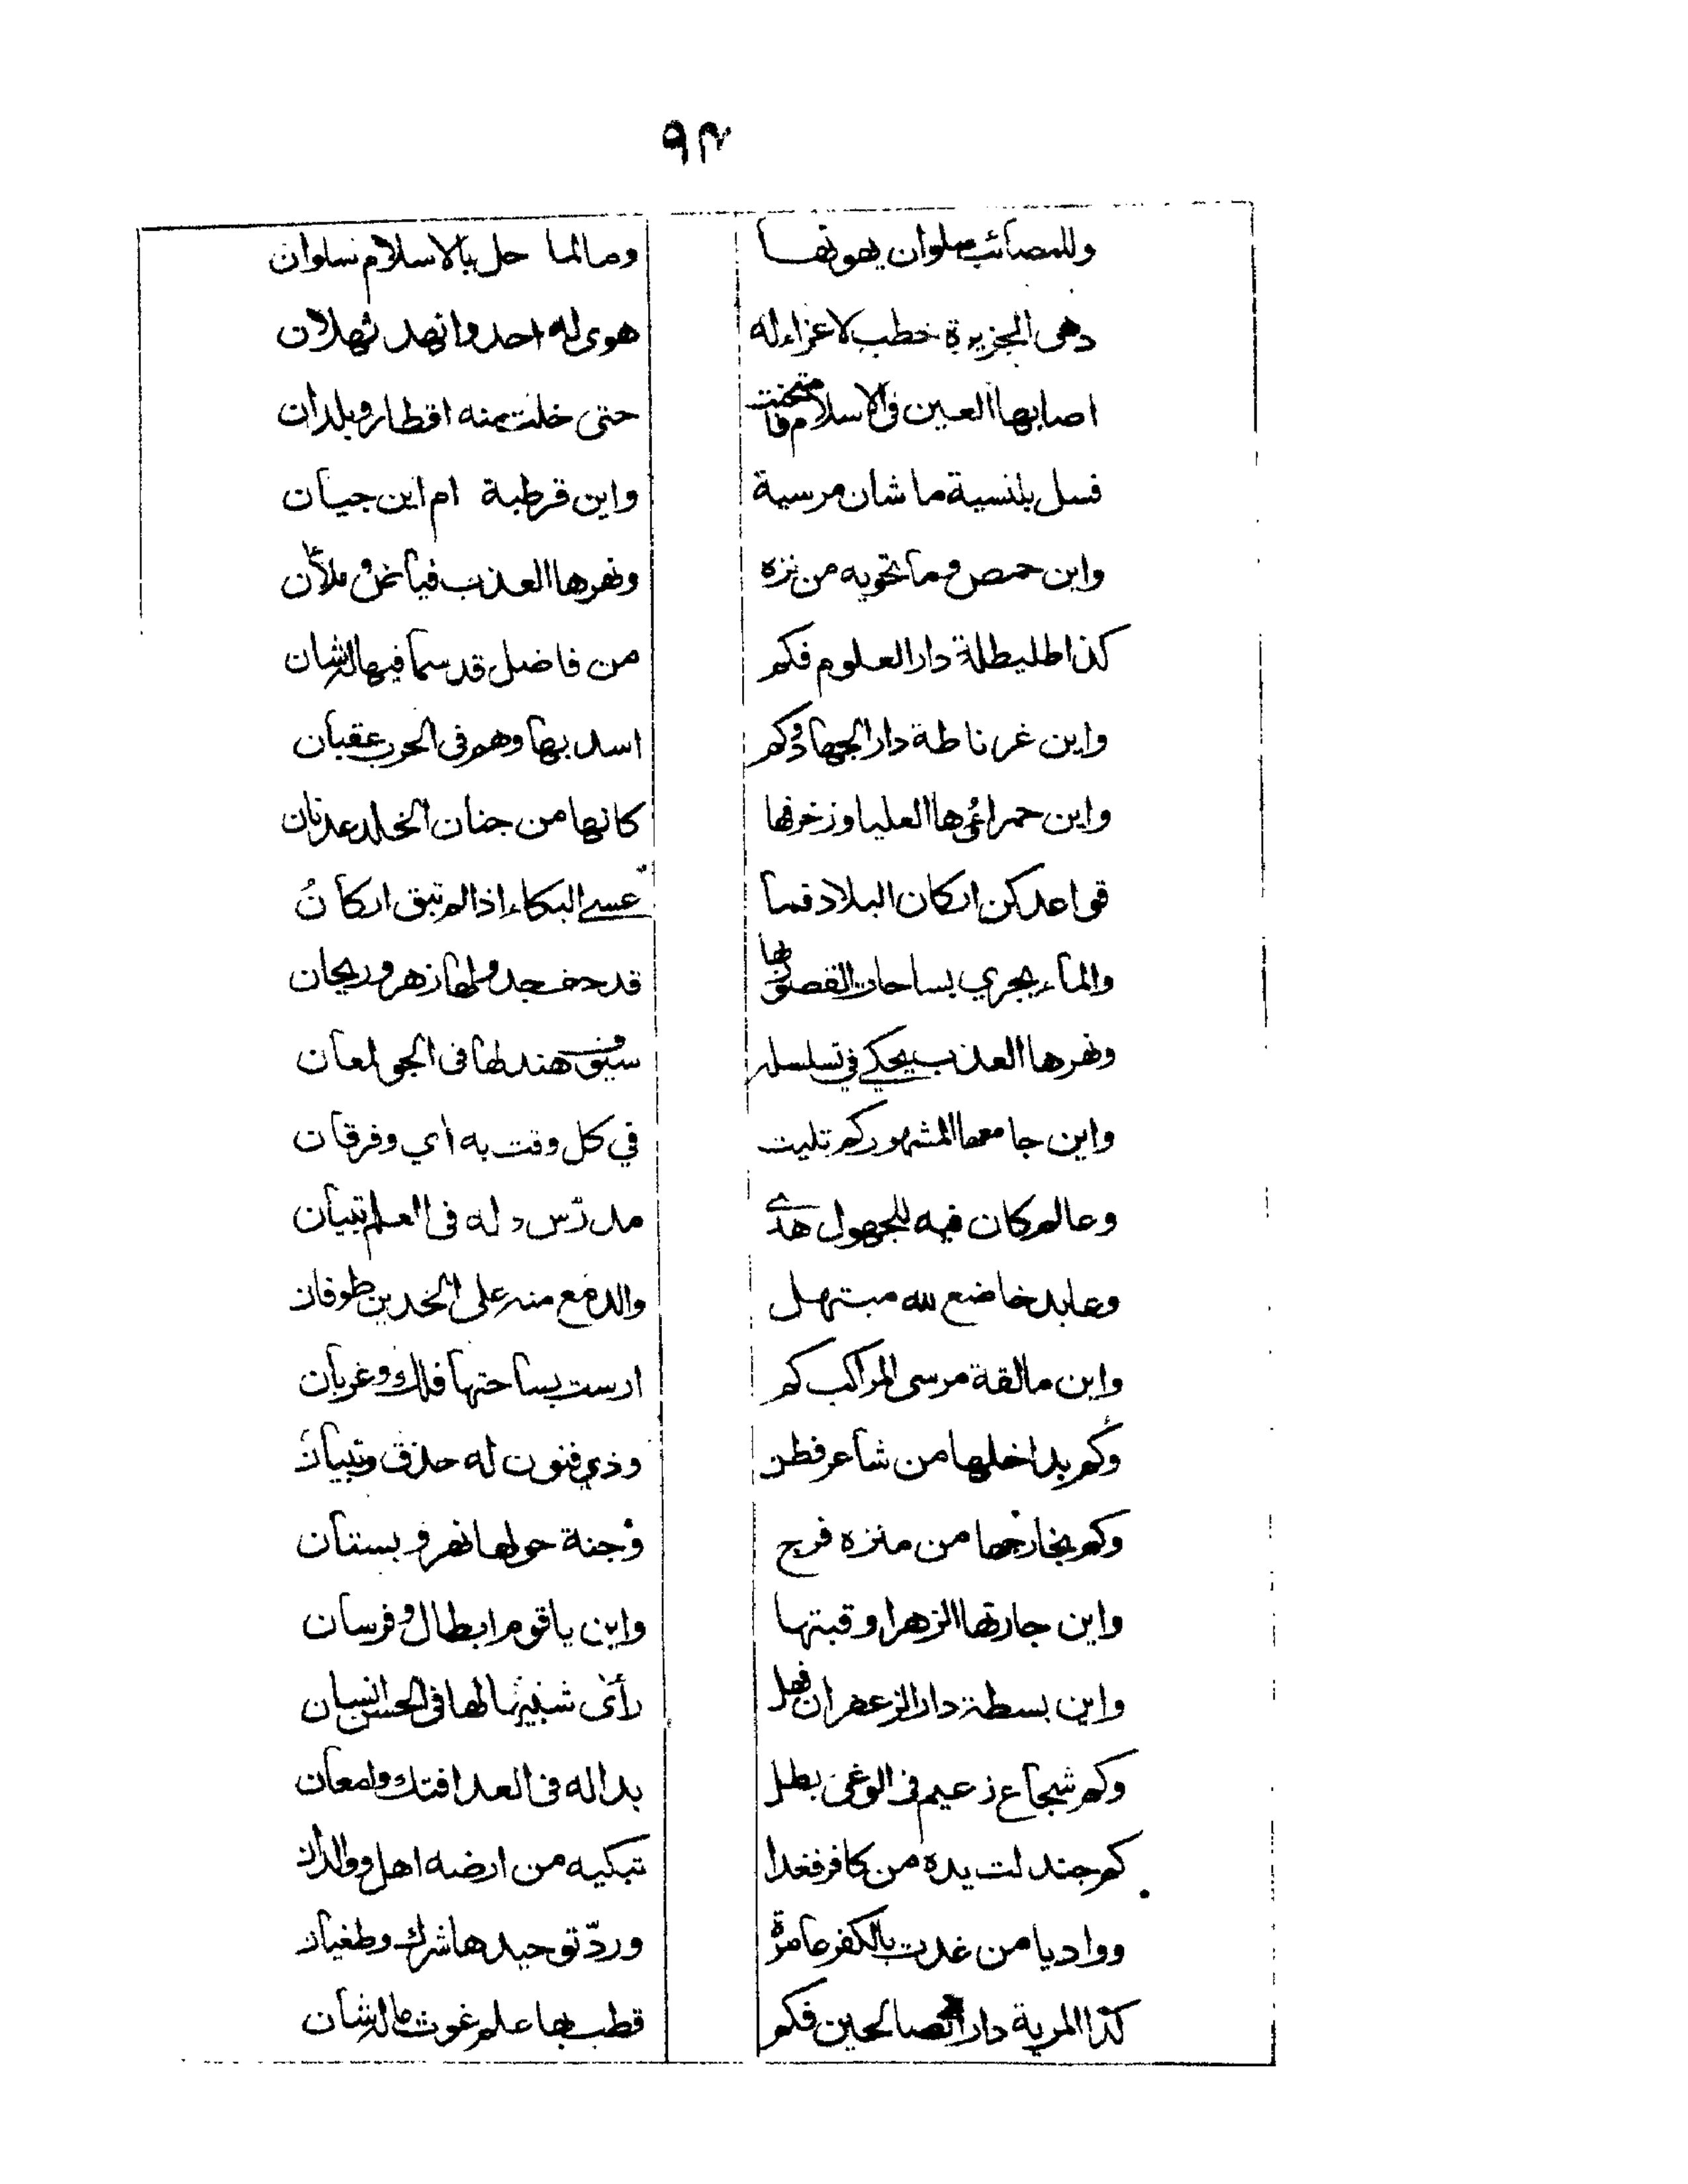 ٩٣
وللمصائب سلوان يهونها وما لما حل بالاسلام سلوان
دهى الجزيرة خطب لا عزاء له هوى له احد وانهد ثهلان
اصابها العين في الاسلام فامتحنت حتى خلت منه اقطار وبلدان
فسل بلنسية ما شان مرسية واين قرطبة ام اين جيان
واين حمص وما تحويه من نزه ونهرها العذب فياض وملآن
كذا طليطلة دار العلوم فكم من فاضل قد سما فيها له شان
واين غرناطة دار الجهاد وكم اسد بها وهم في الحرب عقبان
واين حمراؤها العليا وزخرفها كانها من جنان الخلد عدنان
قواعد كن اركان البلاد فما عسى البكاء اذا لم تبق اركانُ
والماء يجري بساحات القصور بها قد حف جدولها زهر وريحان
ونهرها العذب يحكي في تسلسله سيوف هند لها في الجو لمعان
واين جامعها المشهور كم تليت في كل وقت به اي وفرقان
وعالم كان فيه للجهول هدى مدرّس وله في العلم تبيان
وعابد خاضع لله مبتهل والدمع منه على الخدين طوفان
واين مالقة مرسى المراكب كم ارست بساحتها فلك وغربان
وكم بداخلها من شاعر فطن وذي فنون له حذق وتبيان
وكم بخارجها من منزه فرج وجنة حولها نهر وبستان
واين جارتها الزهرا وقبتها واين ياقوم ابطال وفرسان
واين بسطة دار الزعفران فهل رأى شبيها لها في الحسن انسان
وكم شجاع زعيم في الوغى بطل بدا له في العدا فتك وامعان
كم جندلت يده من كافر فغدا تبكيه من ارضه اهل وولدان
وواديا من غدت بالكفر عامرة وردّ توحيدها شرك وطغيان
كذا المرية دار الصالحين فكم قطب بها علم غوث له شان